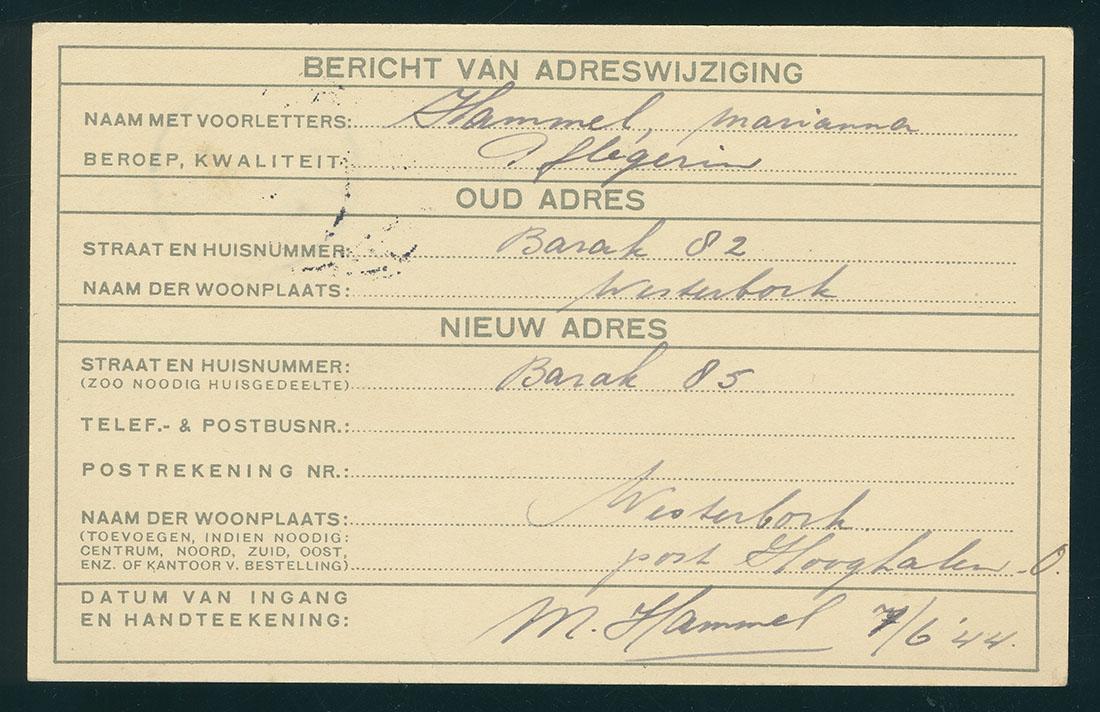 BERICHT VAN ADRESWIJZIGING
NAAM MET VOORLETTERS: Hammel, Marianna
BEROEP, KWALITEIT: Pflegerin
OUD ADRES
STRAAT EN HUISNUMMER: Barak 82
NAAM DER WOONPLAATS: Westerbork
NIEUW ADRES
STRAAT EN HUISNUMMER:
(ZOO NOODIG HUISGEDEELTE) Barak 85
TELEF.- & POSTBUSNR.:
POSTREKENING NR.:
NAAM DER WOONPLAATS: Westerbork
(TOEVOEGEN, INDIEN NOODIG:
CENTRUM, NOORD, ZUID, OOST,
ENZ. OF KANTOOR V. BESTELLING) post Hooghalen-O.
DATUM VAN INGANG
EN HANDTEEKENING: M. Hammel 7/6 '44.